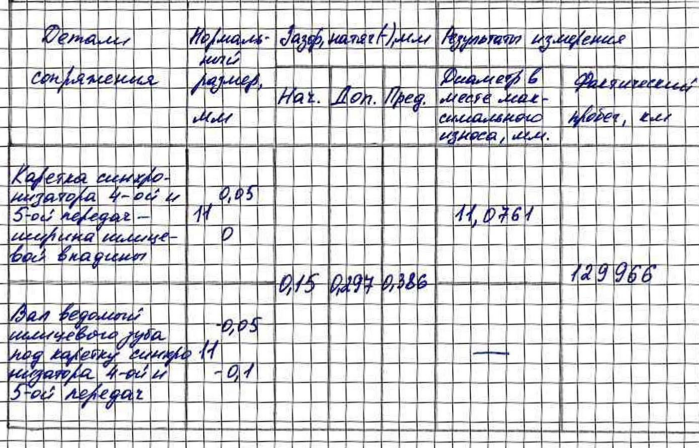 Детали сопряжения
Нормаль-
ный
размер,
мм
Зазор, натяг (-), мм
Нач. Доп. Пред.
Результаты измерения
Диаметр в
месте мак-
симального
износа, мм.
Фактический
пробег, км
Каретка синхро-
низатора 4-ой и
5-ой передач –
ширина шлице-
вой впадины
0,05
11
0
11,0761
0,15 0,297 0,386
129966
Вал ведомый
шлицевого зуба
под каретку синхро
низатора 4-ой и
5-ой передач
-0,05
11
-0,1
—